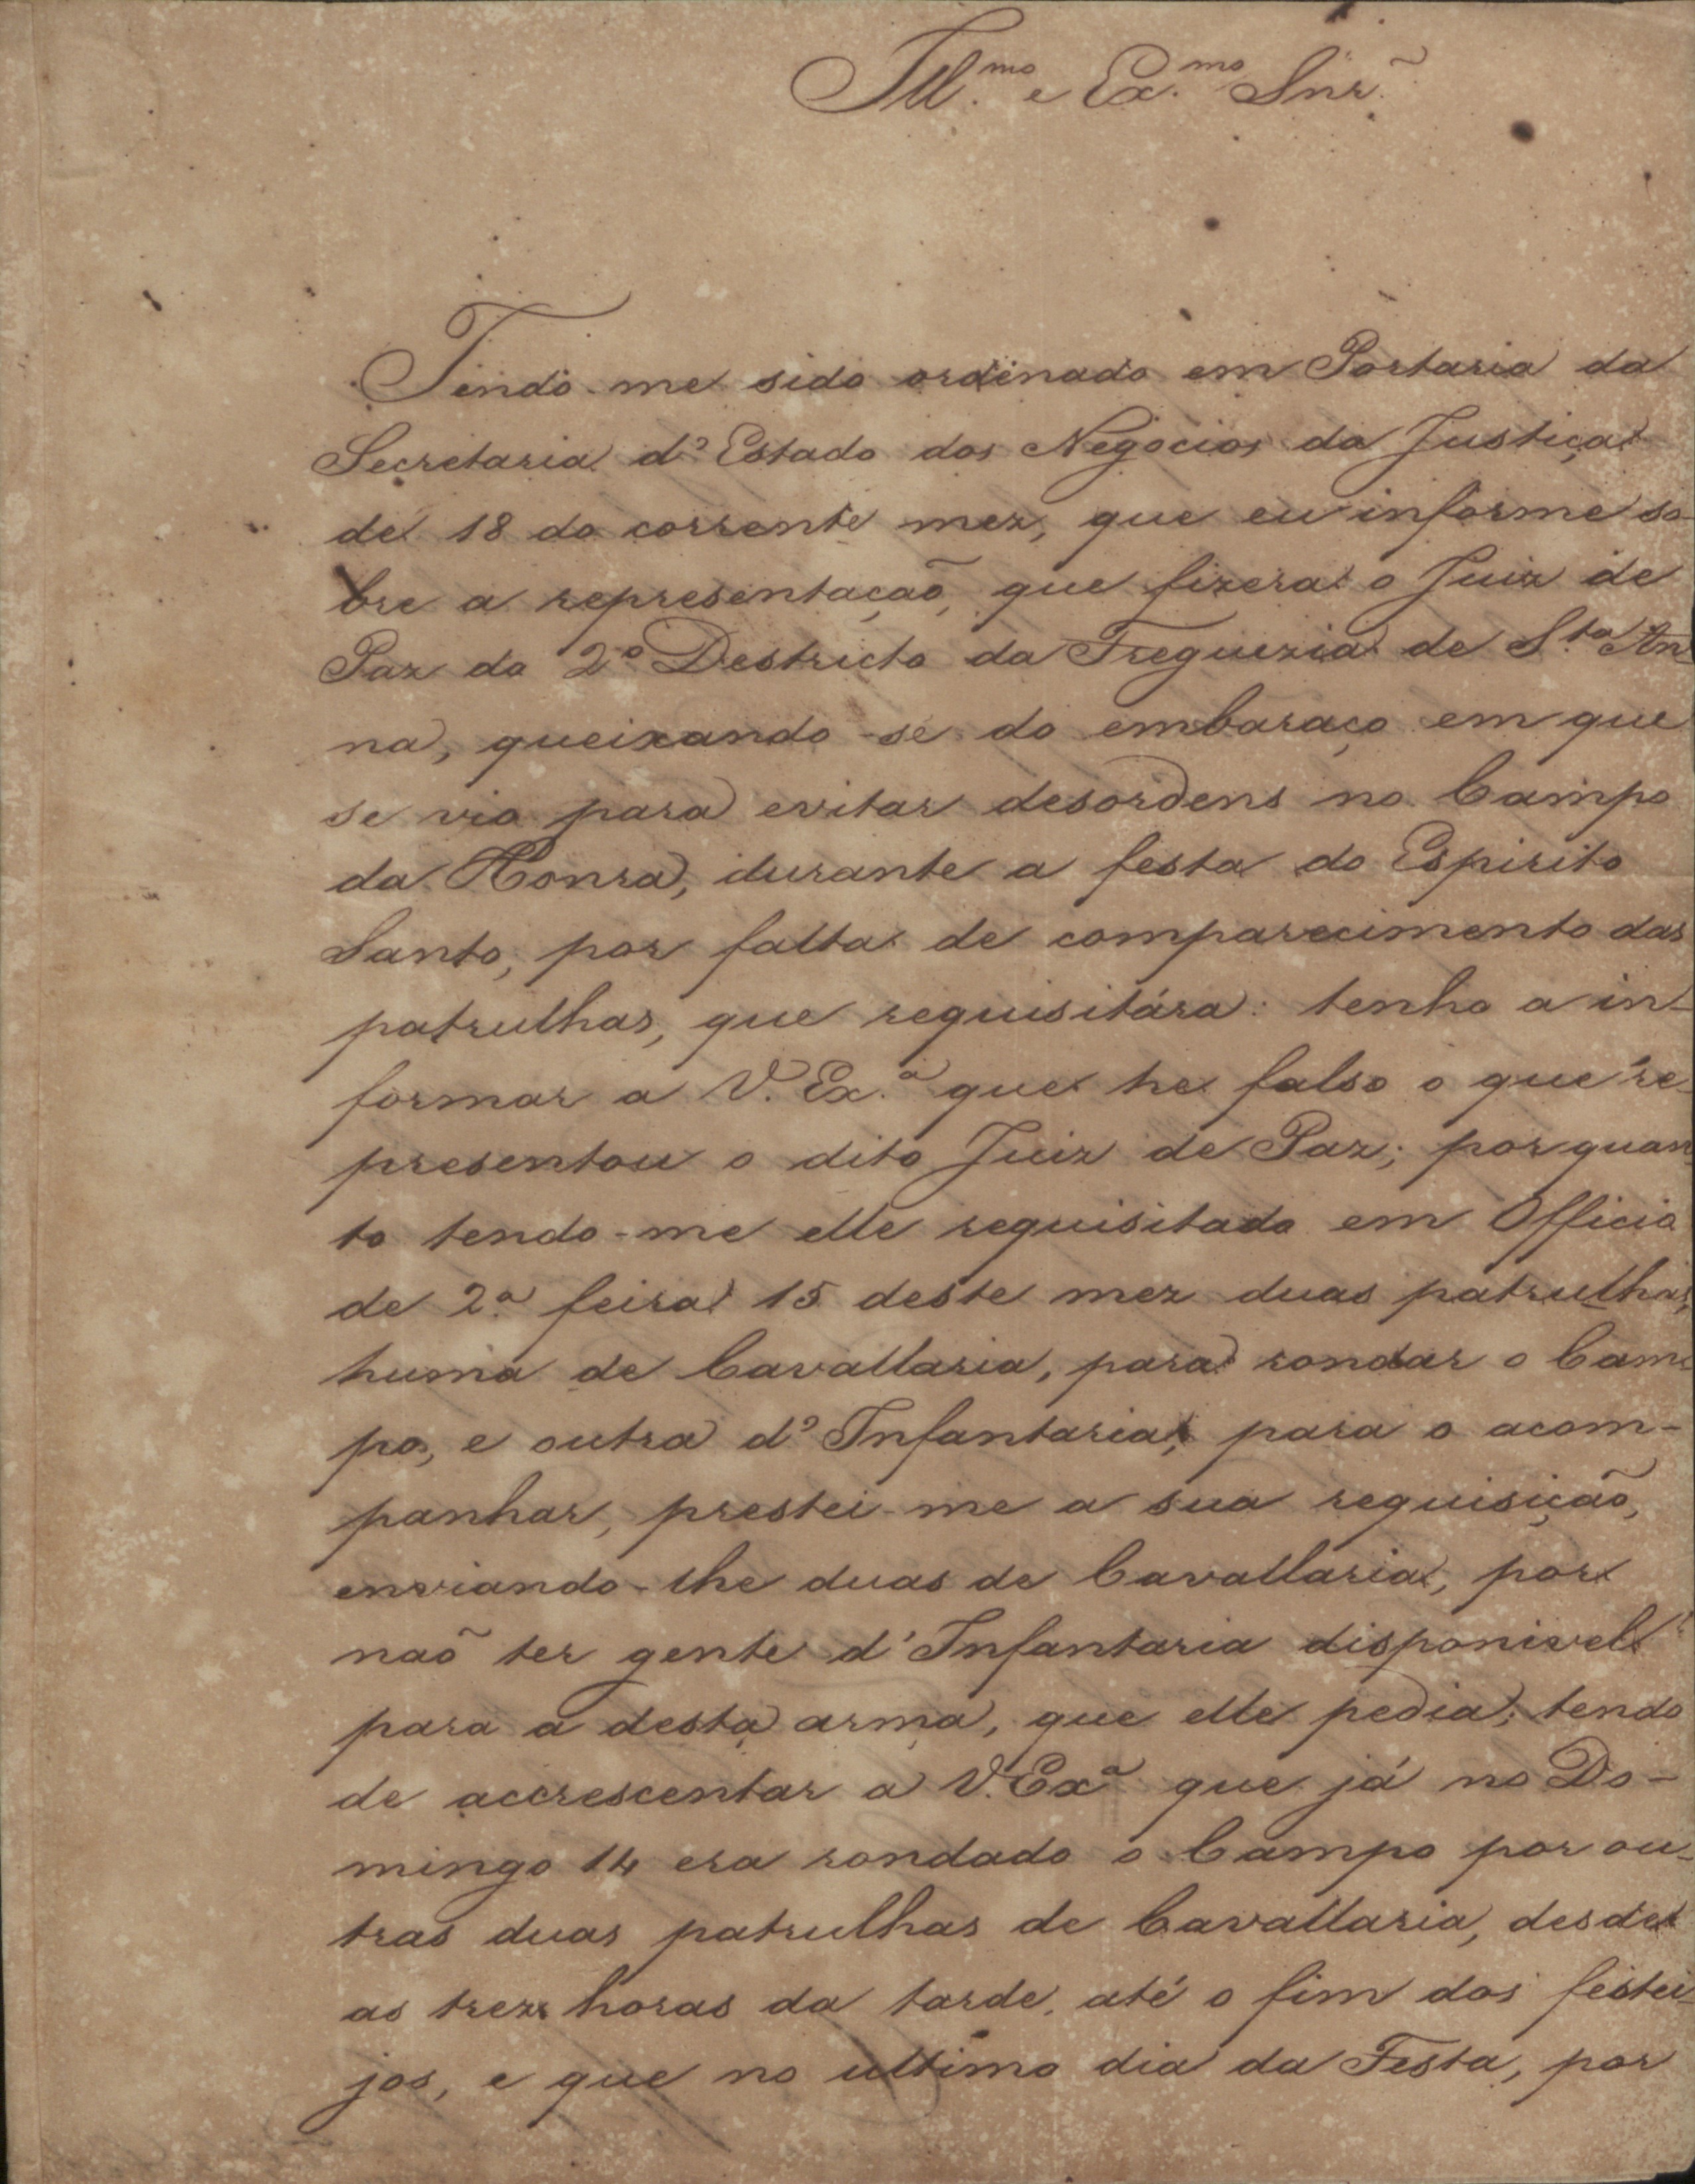 Ill.mo e Ex.mo Snr.
Tendo-me sido ordenado em Portaria da
Secretaria d'Estado dos Negocios da Justiça
de 18 do corrente mez, que eu informe so-
bre a representação, que fizera o Juiz de
Paz do 2º Destricto da Freguezia de S.ta An-
na, queixando-se do embaraço em que
se vio para evitar desordens no Campo
da Honra, durante a festa do Espirito
Santo, por falta de comparecimento das
patrulhas, que requisitára: tenho a in-
formar a V. Ex.a que he falso o que re-
presentou o dito Juiz de Paz; por quan-
to tendo-me elle requisitado em Officio
de 2.a feira 15 deste mez duas patrulhas,
huma de Cavallaria, para rondar o Cam-
po, e outra d'Infantaria, para o acom-
panhar, prestei-me a sua requisição,
enviando-lhe duas de Cavallaria, por
naõ ter gente d'Infantaria disponivel
para a desta arma, que elle pedia; tendo
de accrescentar a V. Ex.a que já no Do-
mingo 14 era rondado o Campo por ou-
tras duas patrulhas de Cavallaria, desde
as trez horas da tarde, até o fim dos festei-
jos, e que no ultimo dia da Festa, por